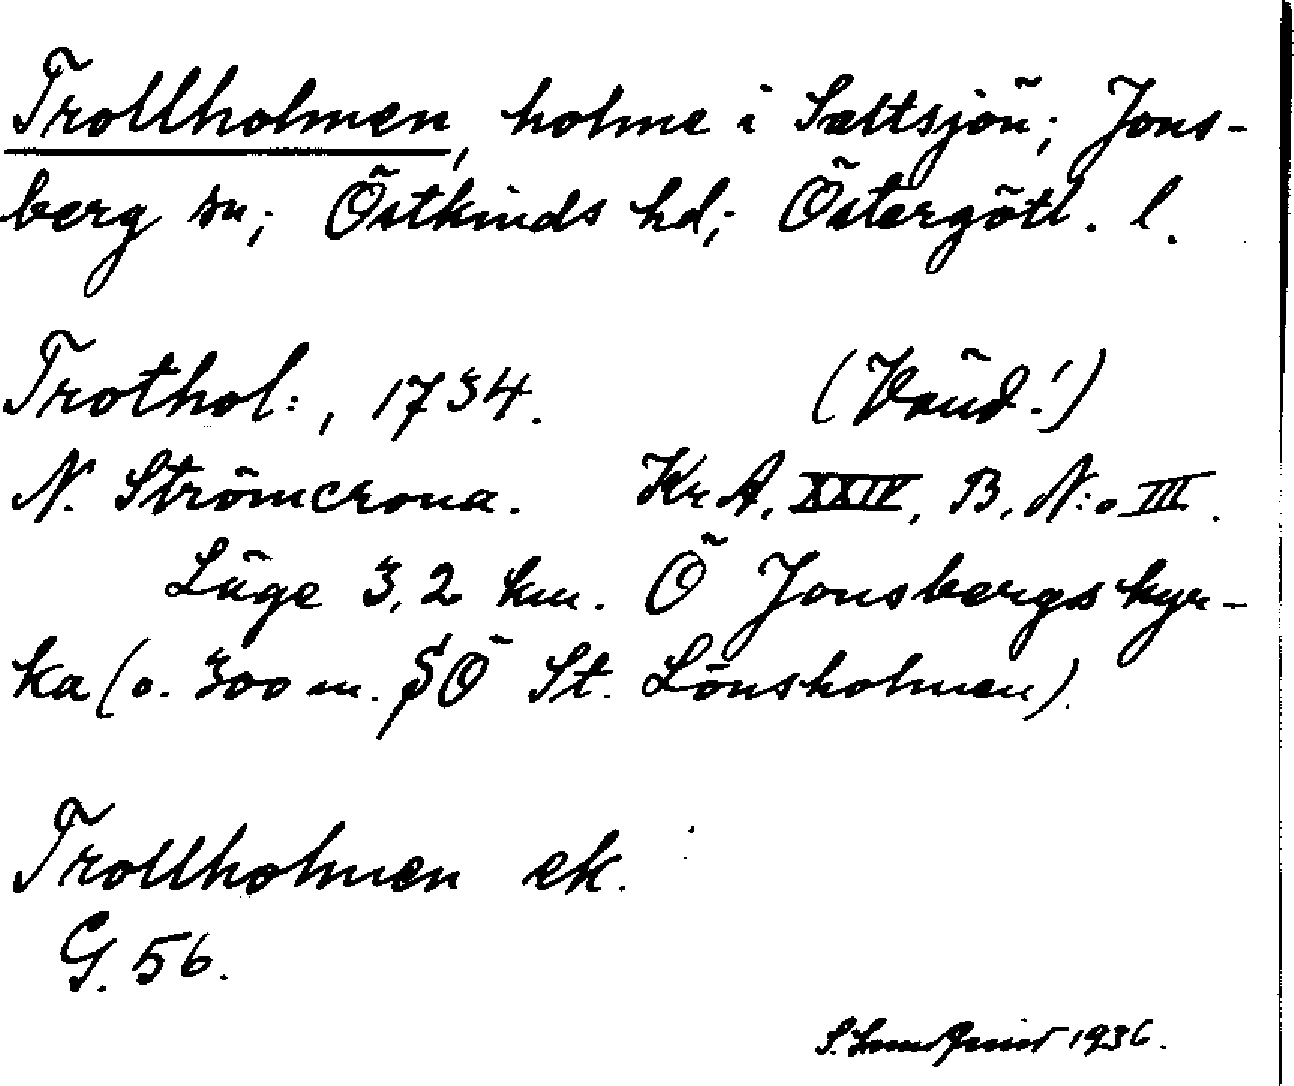 Trollholmen, holme i Saltsjön; Jons-
berg sn; Östkinds hd; Östergötl. l.
Trothol:, 1734. (Vänd!)
N. Strömcrona. Kr A, XXIV, B, N:o III.
Läge 3,2 km. Ö Jonsbergs kyr-
ka (o. 300 m. SÖ St. Lönsholmen).
Trollholmen ek.
G. 56.
S. 1936.